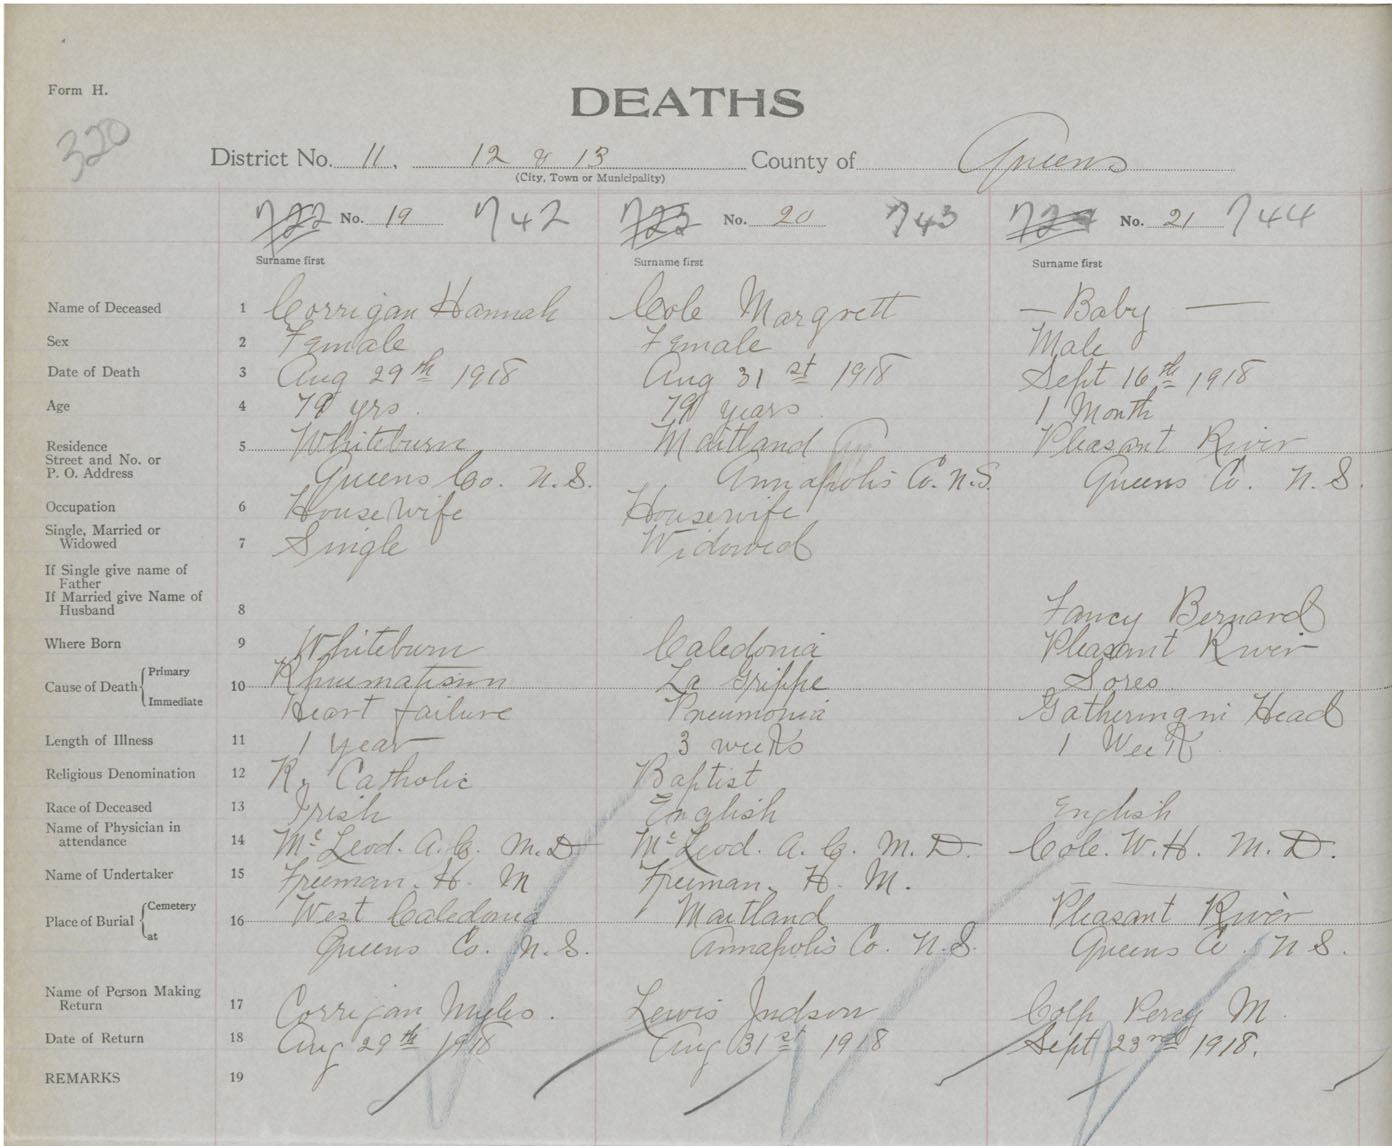 Form H.
DEATHS
320
District No. 11. 12 & 13 County of Queens
(City, Town or Municipality)
722 No. 19 742 723 No. 20 743 724 No. 21 744
Surname first Surname first Surname first
Name of Deceased 1 Corrigan Hannah Cole Margrett — Baby —
Sex 2 Female Female Male
Date of Death 3 Aug 29th 1918 Aug 31st 1918 Sept 16th 1918
Age 4 79 yrs. 79 years. 1 Month
Residence 5 Whiteburn Maitland Pleasant River
Street and No. or
P. O. Address Queens Co. N.S. Annapolis Co. N.S. Queens Co. N.S.
Occupation 6 House Wife Housewife
Single, Married or
Widowed 7 Single Widowed
If Single give name of
Father
If Married give Name of
Husband 8 Fancy Bernard
Where Born 9 Whiteburn Caledonia Pleasant River
Cause of Death { Primary 10 Rhuematism La Grippe Sores
Immediate Heart failure Pneumonia Gathering in Head
Length of Illness 11 1 year 3 weeks 1 Week
Religious Denomination 12 R. Catholic Baptist
Race of Deceased 13 Irish English English
Name of Physician in
attendance 14 McLeod. A. C. M.D McLeod. A. C. M.D. Cole. W.H. M.D.
Name of Undertaker 15 Freeman. H. M Freeman. H. M. —
Place of Burial { Cemetery 16 West Caledonia Maitland Pleasant River
at Queens Co. N.S. Annapolis Co. N.S. Queens Co. N.S.
Name of Person Making
Return 17 Corrigan Myles. Lewis Judson Colp Percy M.
Date of Return 18 Aug 29th 1918 Aug 31st 1918 Sept 23rd 1918.
REMARKS 19